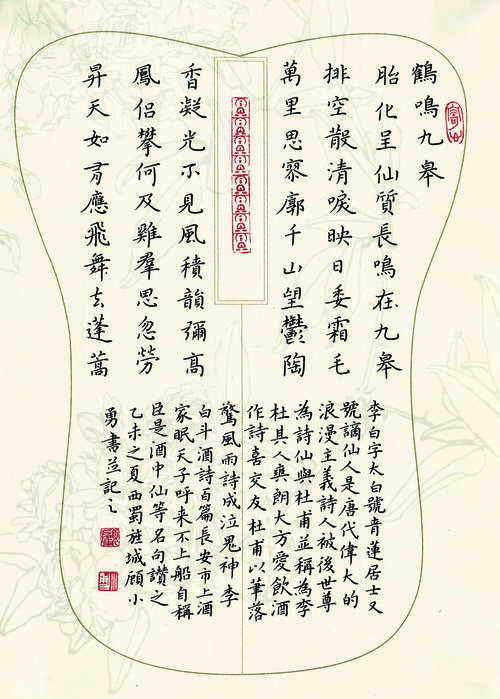 鶴鳴九皋
胎化呈仙質長鳴在九皋
排空散清唳映日委霜毛
萬里思寥廓千山望鬱陶
香凝光不見風積韻彌高
鳳侶攀何及雞羣思忽勞
昇天如有應飛舞去蓬蒿
李白字太白號青蓮居士又
號謫仙人是唐代偉大的
浪漫主義詩人被後世尊
為詩仙與杜甫並稱為李
杜其人爽朗大方愛飲酒
作詩喜交友杜甫以筆落
驚風雨詩成泣鬼神李
白斗酒詩百篇長安市上酒
家眠天子呼来不上船自稱
臣是酒中仙等名句讚之
乙未之夏西蜀旌城顧小
勇書並記之